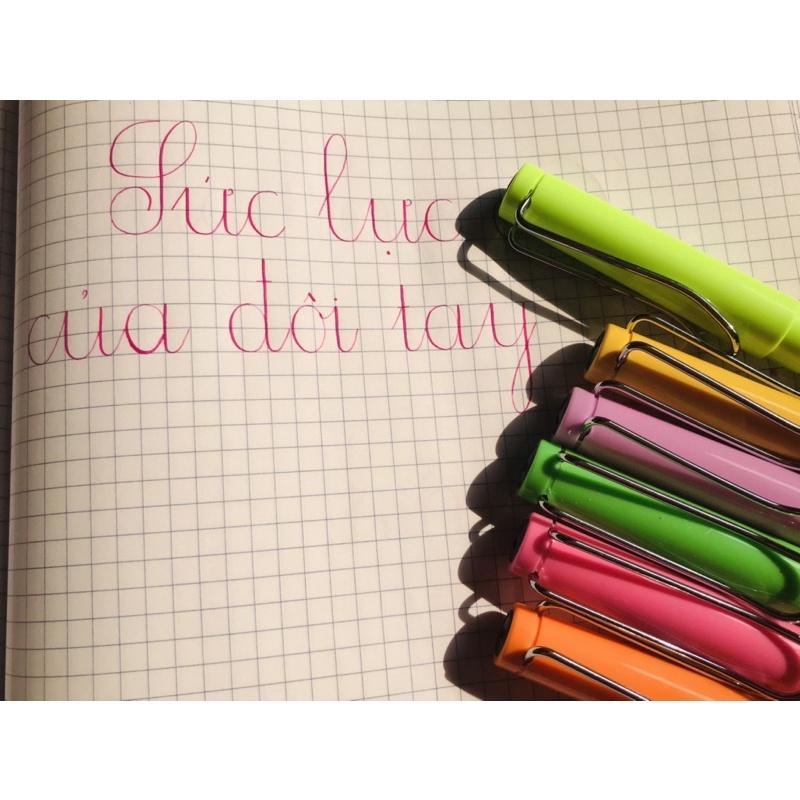 Sức lực
của đôi tay